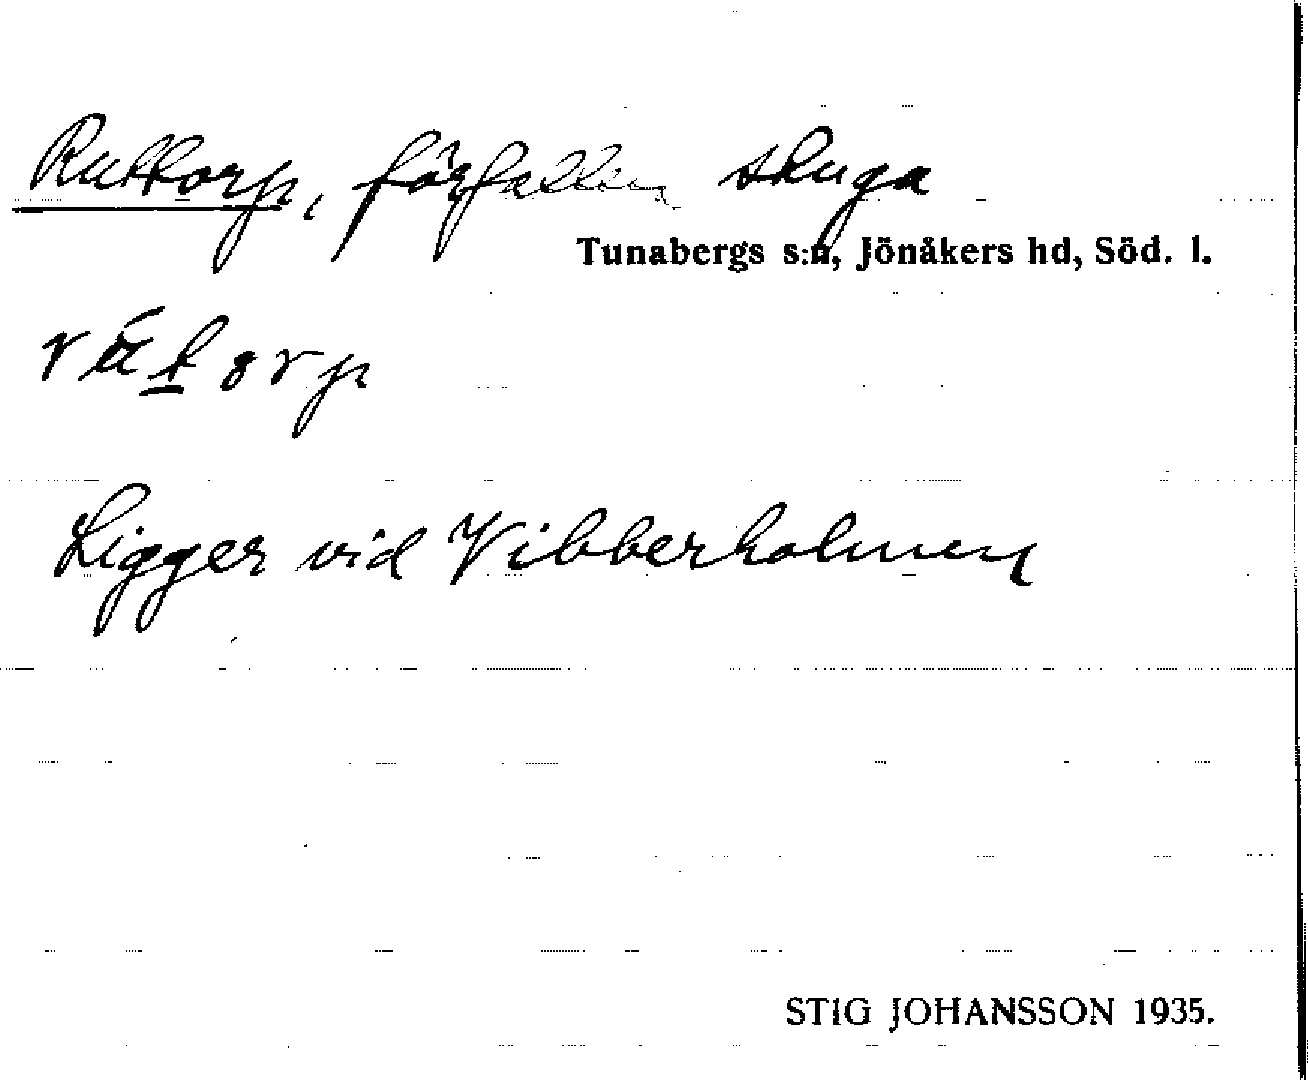 Ruttorp, förfallen stuga
Tunabergs s:n, Jönåkers hd, Söd. l.
Ligger vid Vibberholmen
STIG JOHANSSON 1935.